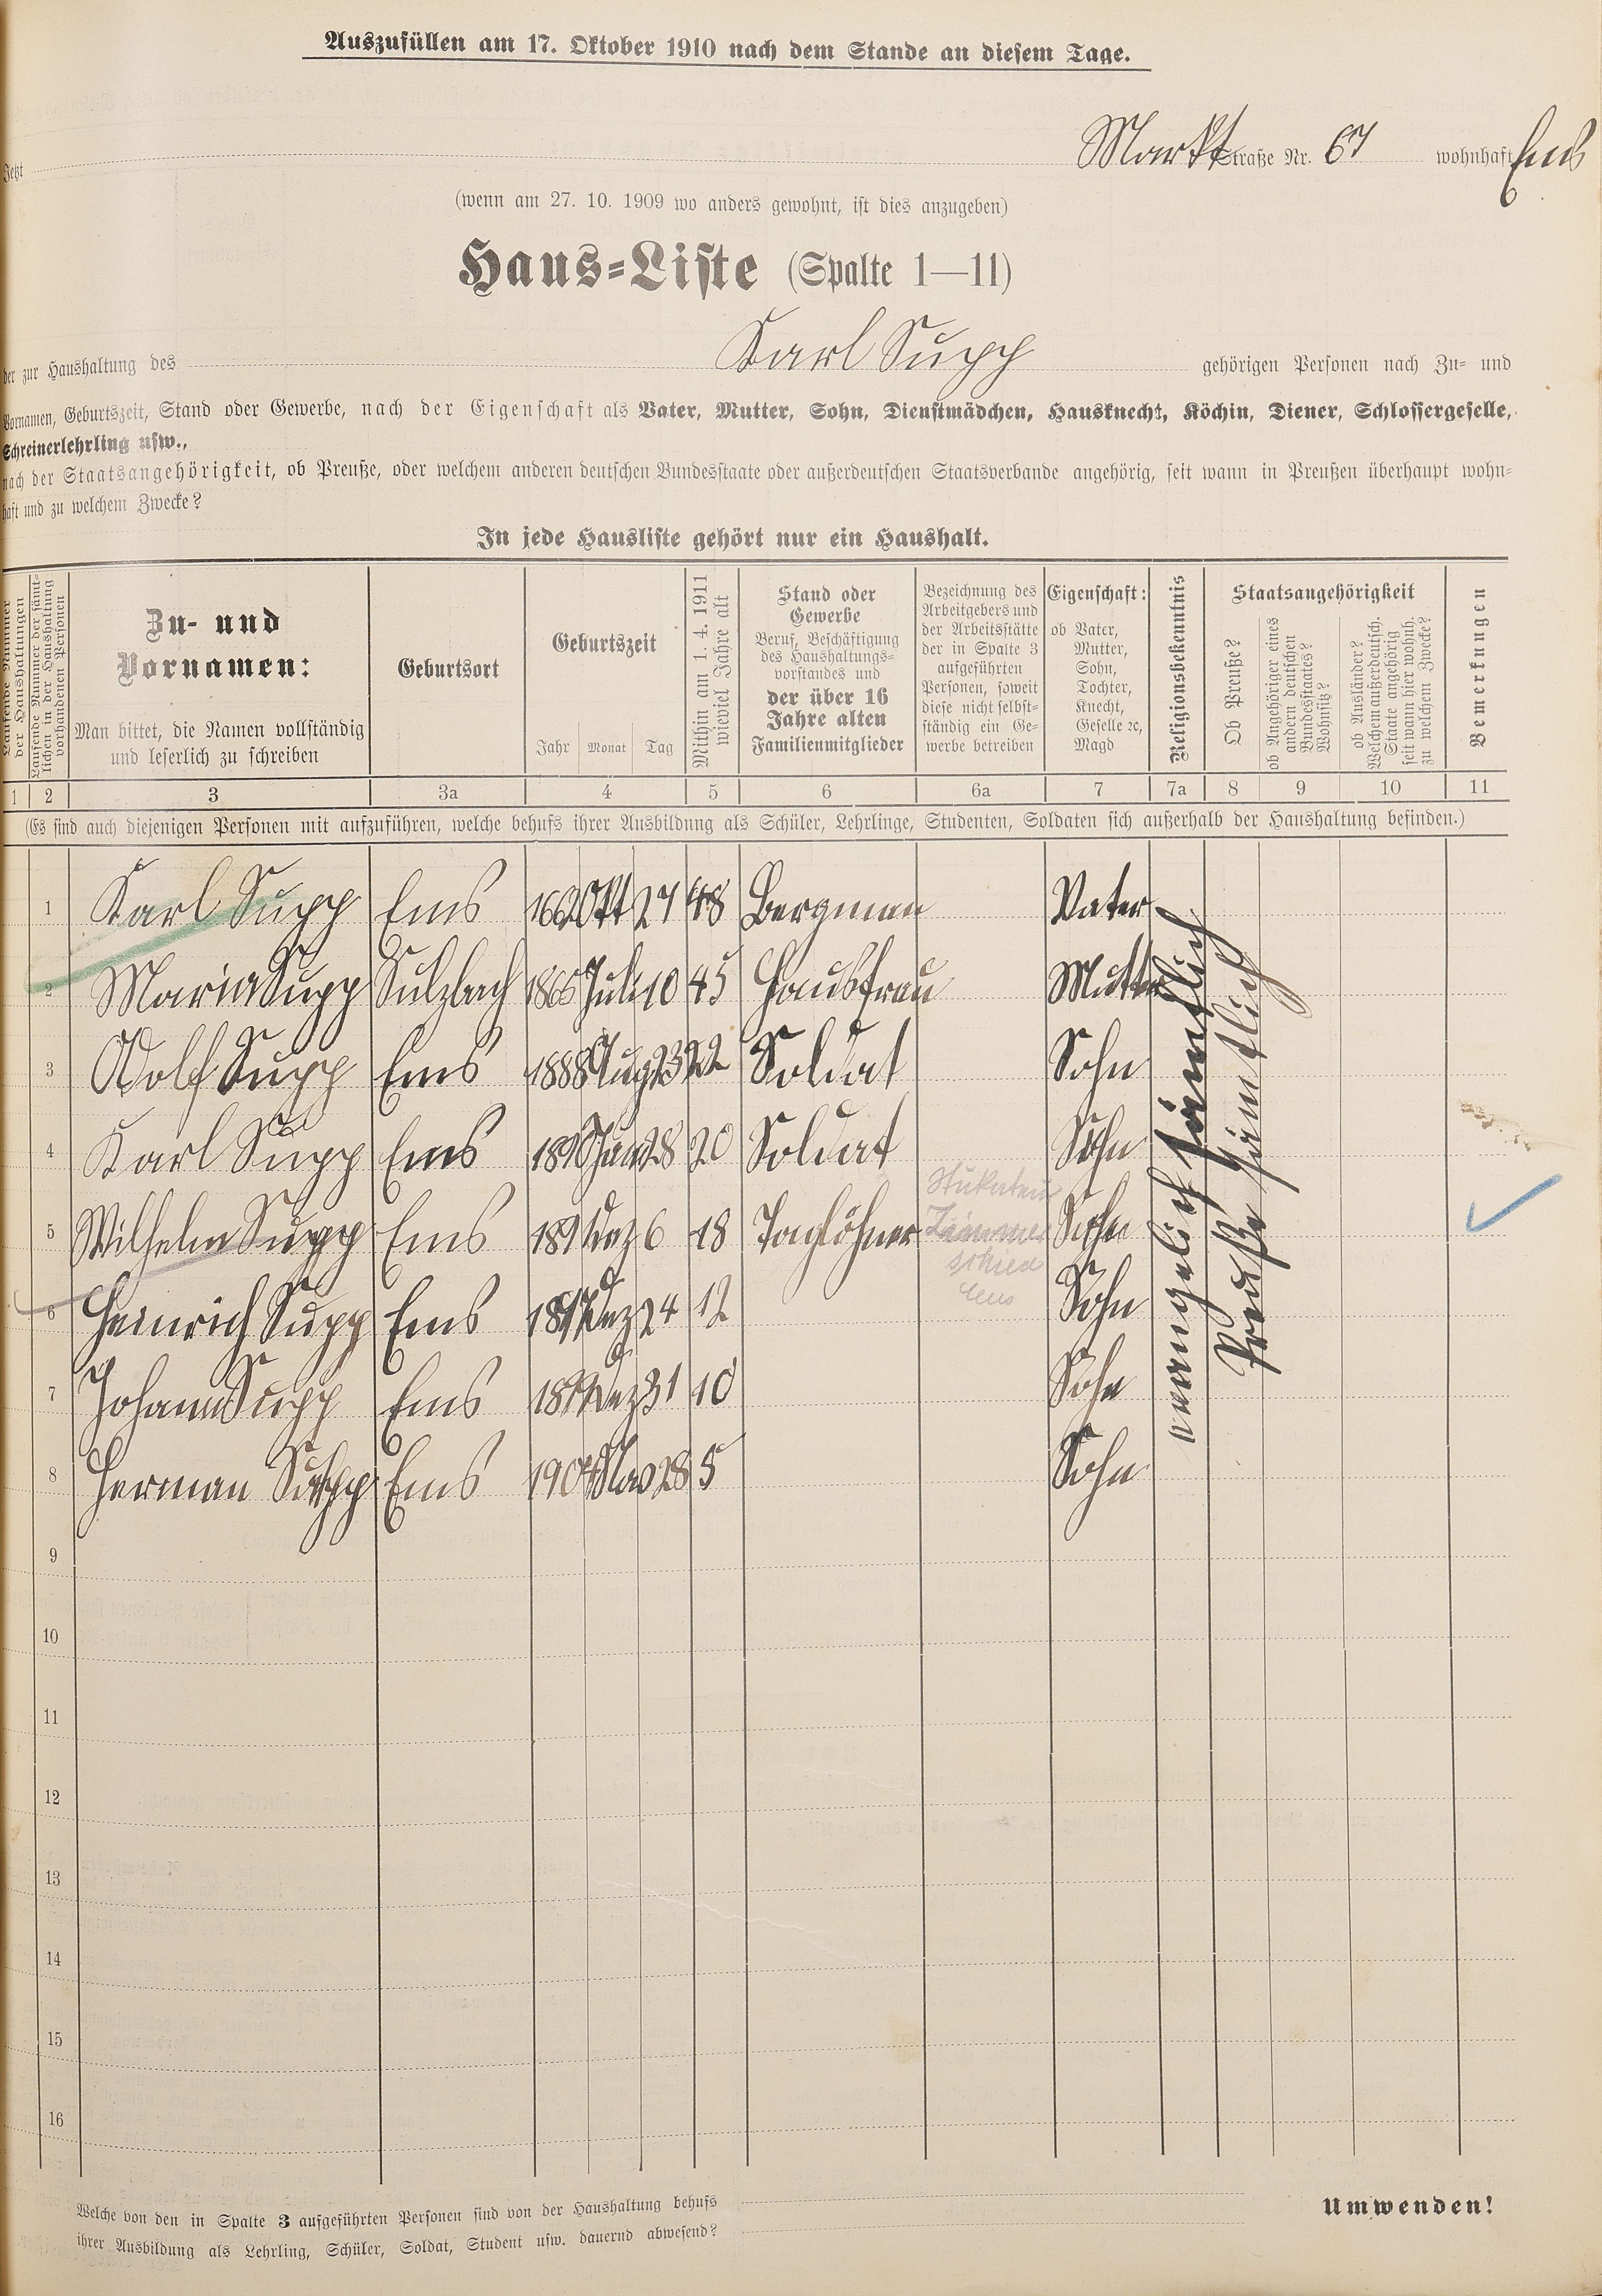 Auszufüllen am 17. Oktober 1910 nach dem Stande an diesem Tage.
Jetzt Markt Straße Nr. 67 wohnhaft Ems
(wenn am 27. 10. 1909 wo anders gewohnt, ist dies anzugeben)
Haus-Liste (Spalte 1—11)
der zur Haushaltung des Karl Supp gehörigen Personen nach Zu- und
Vornamen, Geburtszeit, Stand oder Gewerbe, nach der Eigenschaft als Vater, Mutter, Sohn, Dienstmädchen, Hausknecht, Köchin, Diener, Schlossergeselle,
Schreinerlehrling usw.,
nach der Staatsangehörigkeit, ob Preuße, oder welchem anderen deutschen Bundesstaate oder außerdeutschen Staatsverbande angehörig, seit wann in Preußen überhaupt wohn-
haft und zu welchem Zwecke?
In jede Hausliste gehört nur ein Haushalt.
Laufende Nummer
der Haushaltungen
Laufende Nummer der sämt-
lichen in der Haushaltung
vorhandenen Personen
Zu- und
Vornamen:
Man bittet, die Namen vollständig
und leserlich zu schreiben
Geburtsort
Geburtszeit
Jahr Monat Tag
Mithin am 1. 4. 1911
wieviel Jahre alt
Stand oder
Gewerbe
Beruf, Beschäftigung
des Haushaltungs-
vorstandes und
der über 16
Jahre alten
Familienmitglieder
Bezeichnung des
Arbeitgebers und
der Arbeitsstätte
der in Spalte 3
aufgeführten
Personen, soweit
diese nicht selbst-
ständig ein Ge-
werbe betreiben
Eigenschaft:
ob Vater,
Mutter,
Sohn,
Tochter,
Knecht,
Geselle ec,
Magd
Religionsbekenntnis
Staatsangehörigkeit
Ob Preuße?
ob Angehöriger eines
andern deutschen
Bundesstaates?
Wohnsitz?
ob Ausländer?
Welchem außerdeutsch.
Staate angehörig
seit wann hier wohnh.
zu welchem Zwecke?
Bemerkungen
1 2 3 3a 4 5 6 6a 7 7a 8 9 10 11
(Es sind auch diejenigen Personen mit aufzuführen, welche behufs ihrer Ausbildung als Schüler, Lehrlinge, Studenten, Soldaten sich außerhalb der Haushaltung befinden.)
1 Karl Supp Ems 1862 Okt 27 48 Bergman Vater
2 Maria Supp Sulzbach 1865 Juli 10 45 Hausfrau Mutter
3 Adolf Supp Ems 1888 Aug 23 22 Soldat Sohn
4 Karl Supp Ems 1890 28 20 Soldat Sohn
5 Wilhelm Supp Ems Dez 6 18 Taglöhner Stukateur Sohn
Ems
6 Heinrich Supp Ems Dez 24 12 Sohn
7 Johann Supp Ems 1899 Dez 31 10 Sohn
8 Herman Supp Ems 190 Nov 28 5 Sohn
evangelich sämtlich
Preuße sämtlich
9
10
11
12
13
14
15
16
Welche von den in Spalte 3 aufgeführten Personen sind von der Haushaltung behufs
ihrer Ausbildung als Lehrling, Schüler, Soldat, Student usw. dauernd abwesend?
Umwenden!